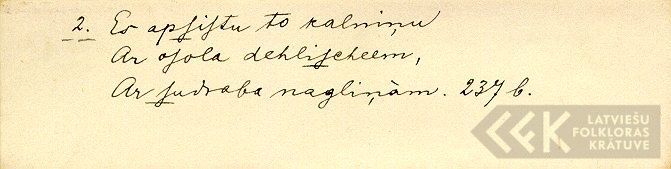 2. Es apsistu to kalniņu
Ar osola dehlischeem,
Ar sudraba nagliņàm. 237 b.
LATVIEŠU
FOLKLORAS
KRĀTUVE